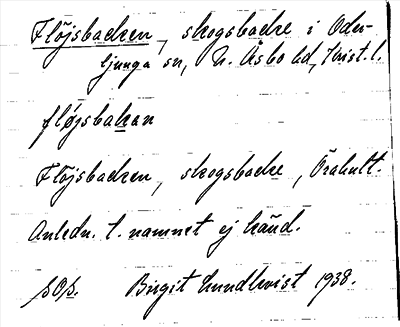 Flöjsbacken, skogsbacke i Oder-
ljunga sn, N. Åsbo hd, Krist. l.
fløjsbakan
Flöjsbacken, skogsbacke, Örahult.
Anledn. t. namnet ej känd.
Birgit Lundkvist 1938.